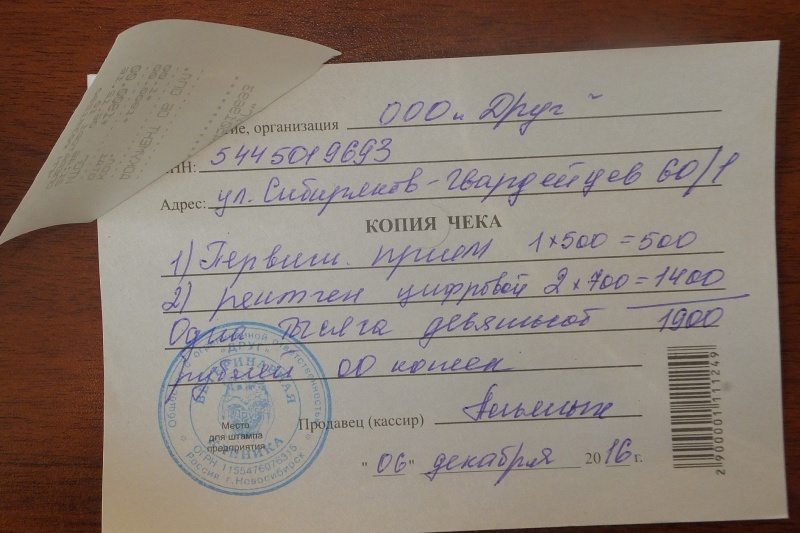 ние, организация ООО „Друг"
ИНН: 5445019693
Адрес: ул. Сибиряков-Гвардейцев 60/1
КОПИЯ ЧЕКА
1) Первичн. прием 1×500=500
2) рентген цифровой 2×700=1400
Одна тысяча девятьсот 1900
рублей 00 копеек
Продавец (кассир)
"06" декабря 2016 г.
Место
для штампа
предприятия
ДРУГ
ВЕТЕРИНАРНАЯ
КЛИНИКА
ОГРН 1155476073315
Россия г. Новосибирск
2900001111249